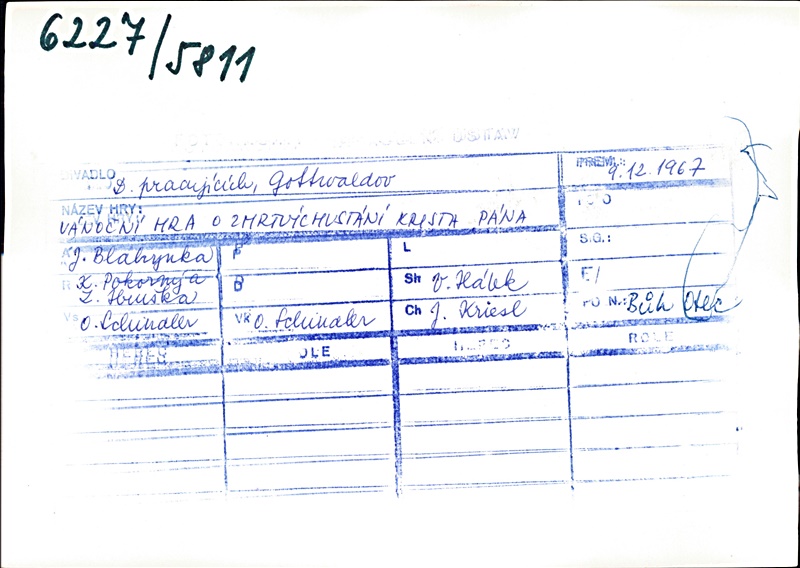 6227/5811
DIVADLO D. pracujících, Gottwaldov PREM.: 9.12.1967
NÁZEV HRY: FOTO
VÁNOČNÍ HRA O ZMRTVÝCHVSTÁNÍ KRISTA PÁNA
A J. Blahynka P L S.G.:
R K. Pokorný a B Sh V. Hálek E/
Z. Hbuška
Vs O. Schindler VK O. Schindler Ch J. Kriesl PO N.: Bůh Otec
HEREC ROLE HEREC ROLE